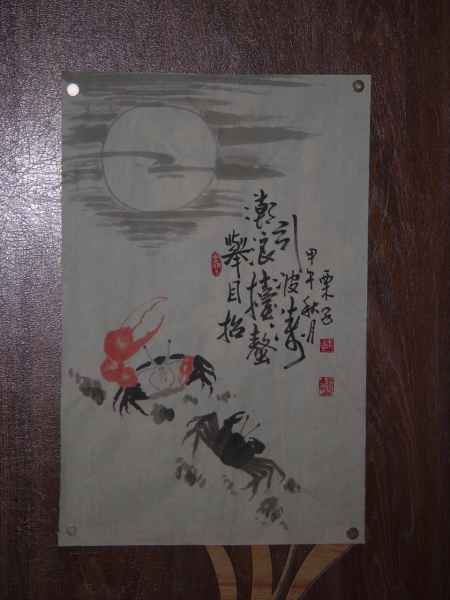 引波涛
潮浪擡螯
舉目招
甲午秋月
栗子